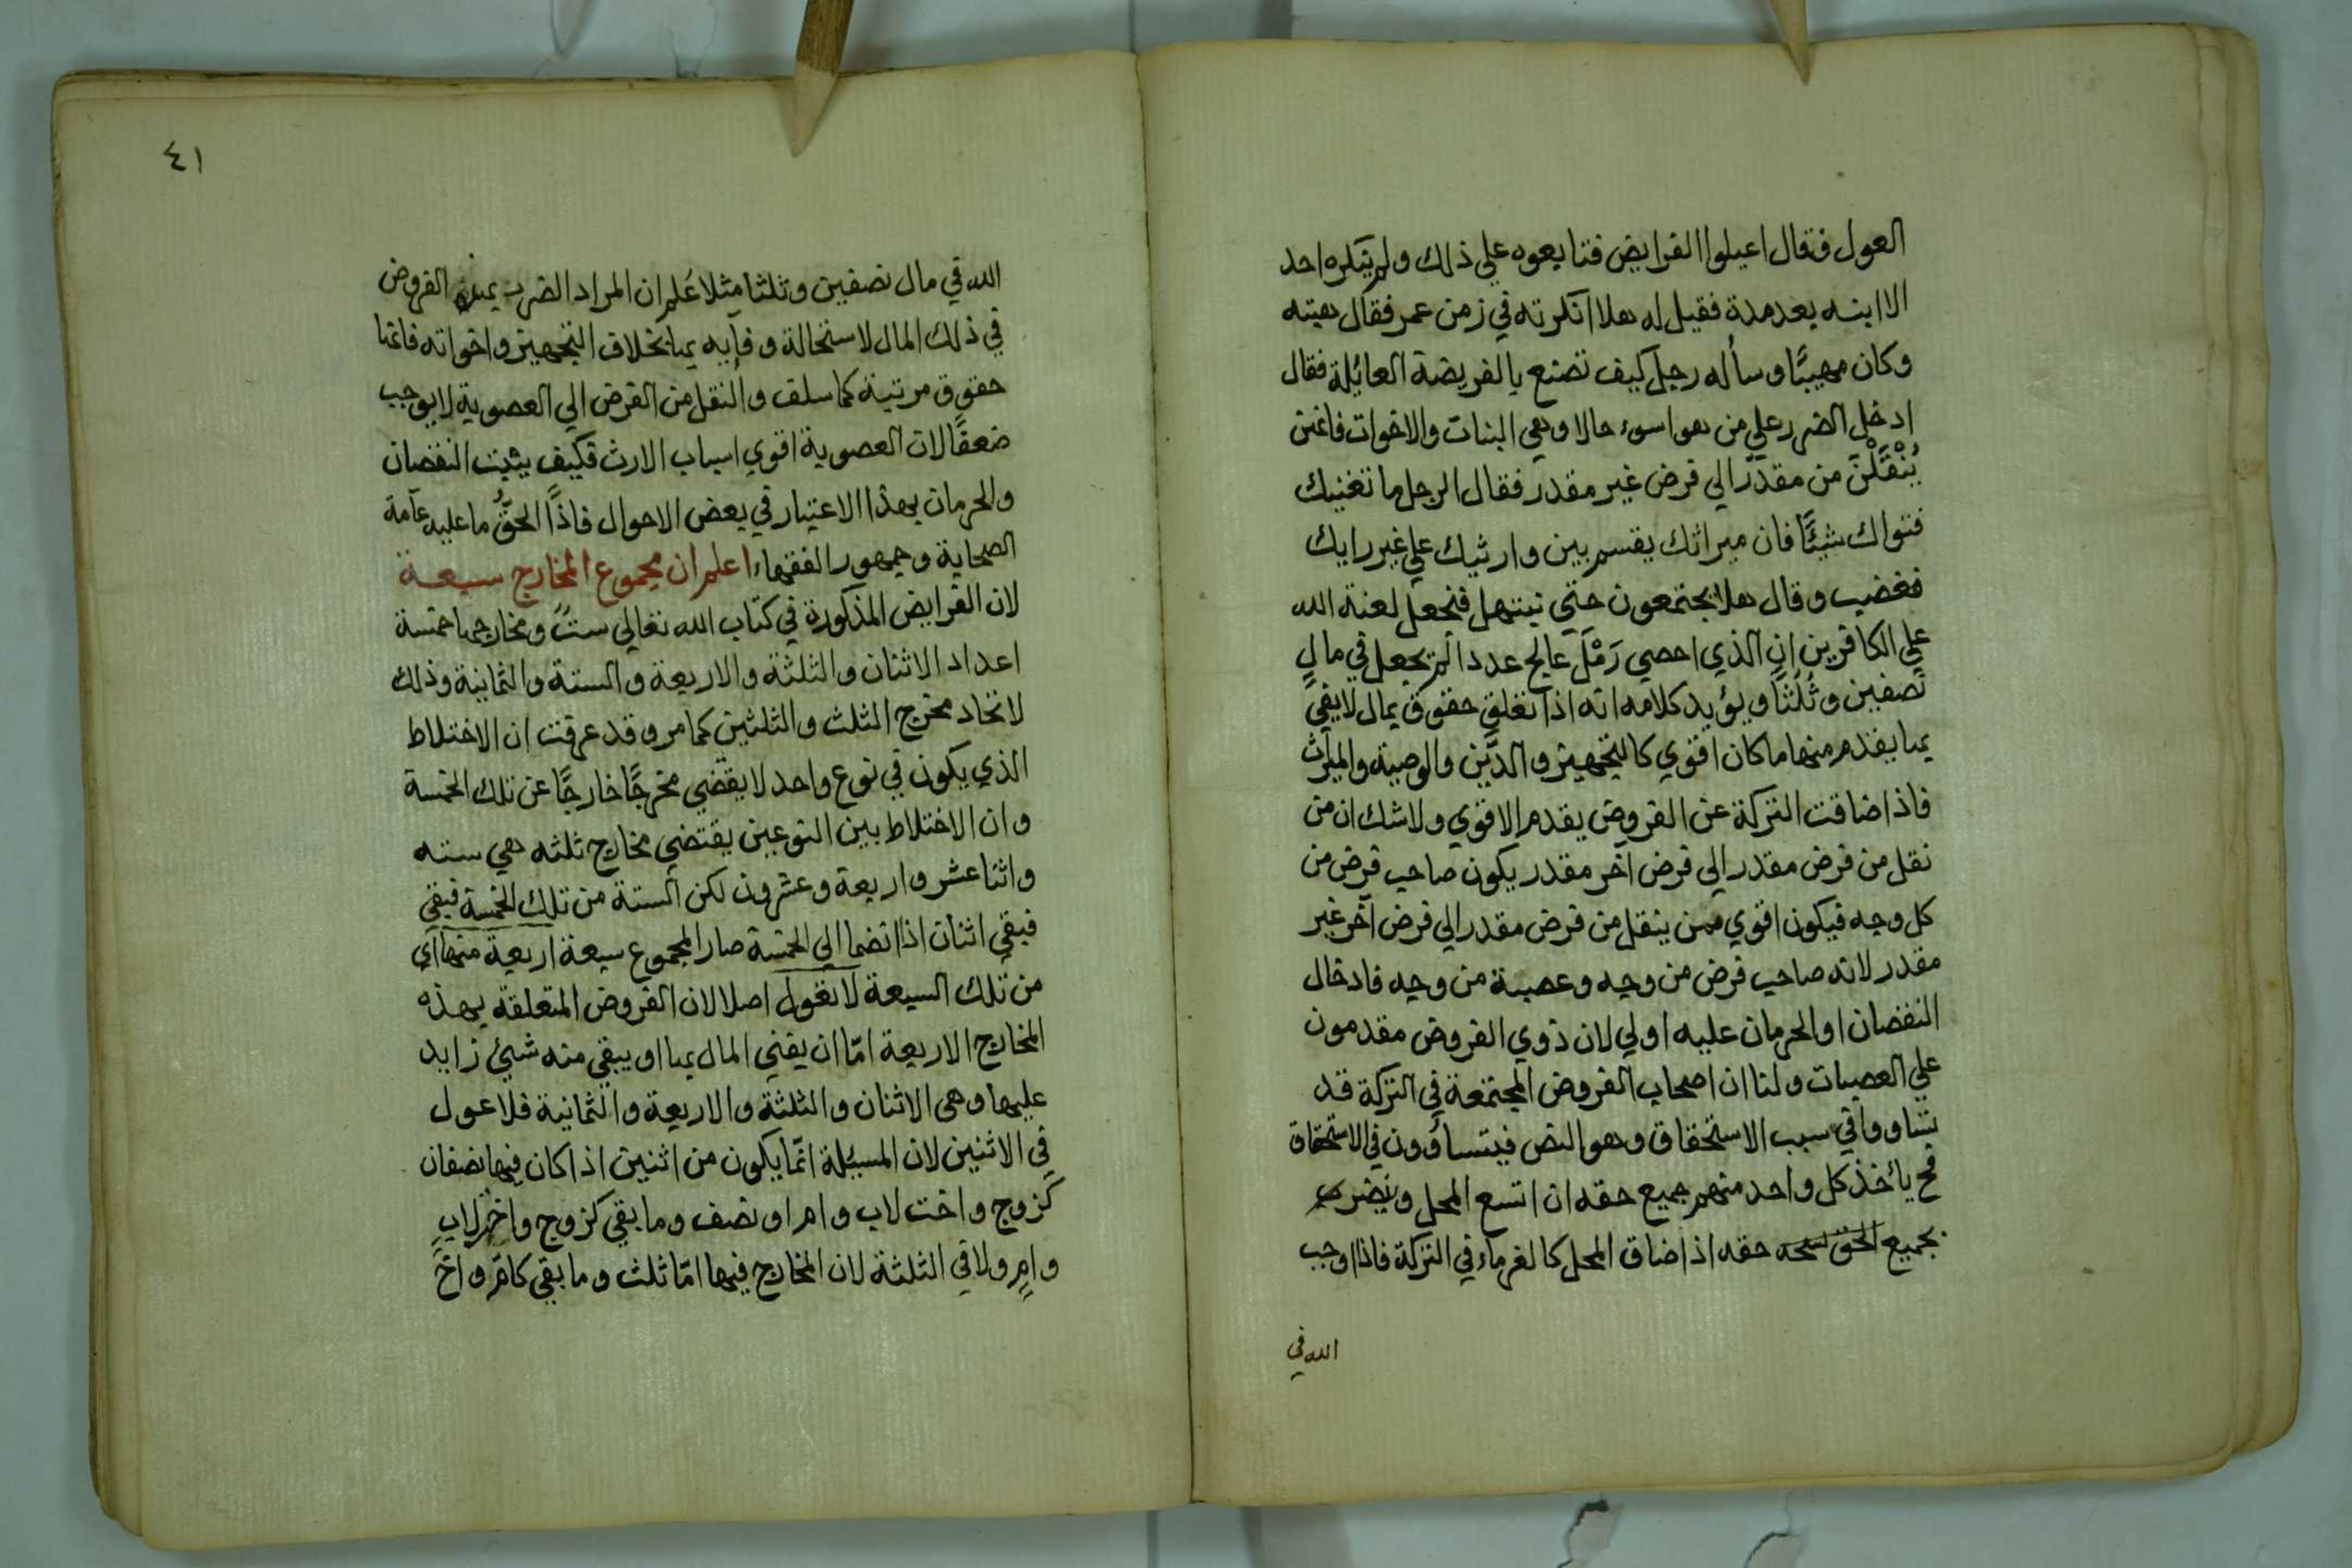 العول فقال اعيلوا الفرايض فتابعوه علي ذلك ولم ينكره احد
الا ابنه بعد مدة فقيل له هلا انكرته في زمن عمر فقال هبته
وكان مهيبًا وسأله رجل كيف تصنع بالفريضة العائلة فقال
ادخل الضرر علي من هو اسوء حالا وهي البنات والاخوات فانهن
يُنْقَلْنَ من مقدر الي فرض غير مقدر فقال الرجل ما تغنيك
فتواك شيئًا فان ميراثك يقسم بين وارثيك علي غير رايك
فغضب وقال هلا يجتمعون حتي نبتهل فنجعل لعنة الله
علي الكافرين ان الذي احصي رَمْلَ عالج عددا لم يجعل في مال
نصفين وثُلثًا ويؤيد كلامه انه اذا تعلق حقوق بمال لا يفي
بها يقدم منها ما كان اقوي كالتجهيز والدَّين والوصية والميراث
فاذا ضاقت التركة عن الفروض يقدم الاقوي ولا شك ان من
نقل من فرض مقدر الي فرض آخر مقدر يكون صاحب فرض من
كل وجه فيكون اقوي ممن ينقل من فرض مقدر الي فرض آخر غير
مقدر لانه صاحب فرض من وجه وعصبة من وجه فادخال
النقصان او الحرمان عليه اولي لان ذوي الفروض مقدمون
علي العصبات ولنا ان اصحاب الفروض المجتمعة في التركة قد
تساووا في سبب الاستحقاق وهو النص فيتساوُون في الاستحقاق
فح يأخذ كل واحد منهم جميع حقه ان اتسع المحل ويضرب
بجميع الحق حقه اذا ضاق المحل كالغرماء في التركة فاذا اوجب
الله في
٤١
الله في مال نصفين وثلثا مثلا عُلم ان المراد الضرب بهذه الفروض
في ذلك المال لاستحالة وفآيه بها بخلاف التجهيز واخواته فانها
حقوق مرتبة كما سلف والنقل من الفرض الي العصوبة لا يوجب
ضعفًا لان العصوبة اقوي اسباب الارث فكيف يثبت النقصان
والحرمان بهذا الاعتبار في بعض الاحوال فاذًا الحقُّ ما عليه عآمة
الصحابة وجمهور الفقهاء اعلم ان مجموع المخارج سبعة
لان الفرايض المذكورة في كتاب الله تعالي ستٌ ومخارجها خمسة
اعداد الاثنان والثلثة والاربعة والستة والثمانية وذلك
لاتحاد مخرج الثلث والثلثين كما مر وقد عرفت ان الاختلاط
الذي يكون في نوع واحد لا يقضي مخرجًا خارجًا عن تلك الخمسة
وان الاختلاط بين النوعين يقتضي مخارج ثلثه هي سته
واثنا عشر واربعة وعشرون لكن الستة من تلك الخمسة فبقي
فبقي اثنان اذا انضما الي الخمسة صار المجموع سبعة اربعة منها اي
من تلك السبعة لا تعول اصلا لان الفروض المتعلقة بهذه
المخارج الاربعة امّا ان يفني المال بها او يبقي منه شيئ زايد
عليها وهي الاثنان والثلثة والاربعة والثمانية فلا عول
في الاثنين لان المسئلة انّما يكون من اثنين اذا كان فيها نصفان
كزوج واخت لاب وام او نصف وما بقي كزوج واخ لاب
وامٍ ولا في الثلثة لان المخارج فيها امّا ثلث وما بقي كامّ واخ